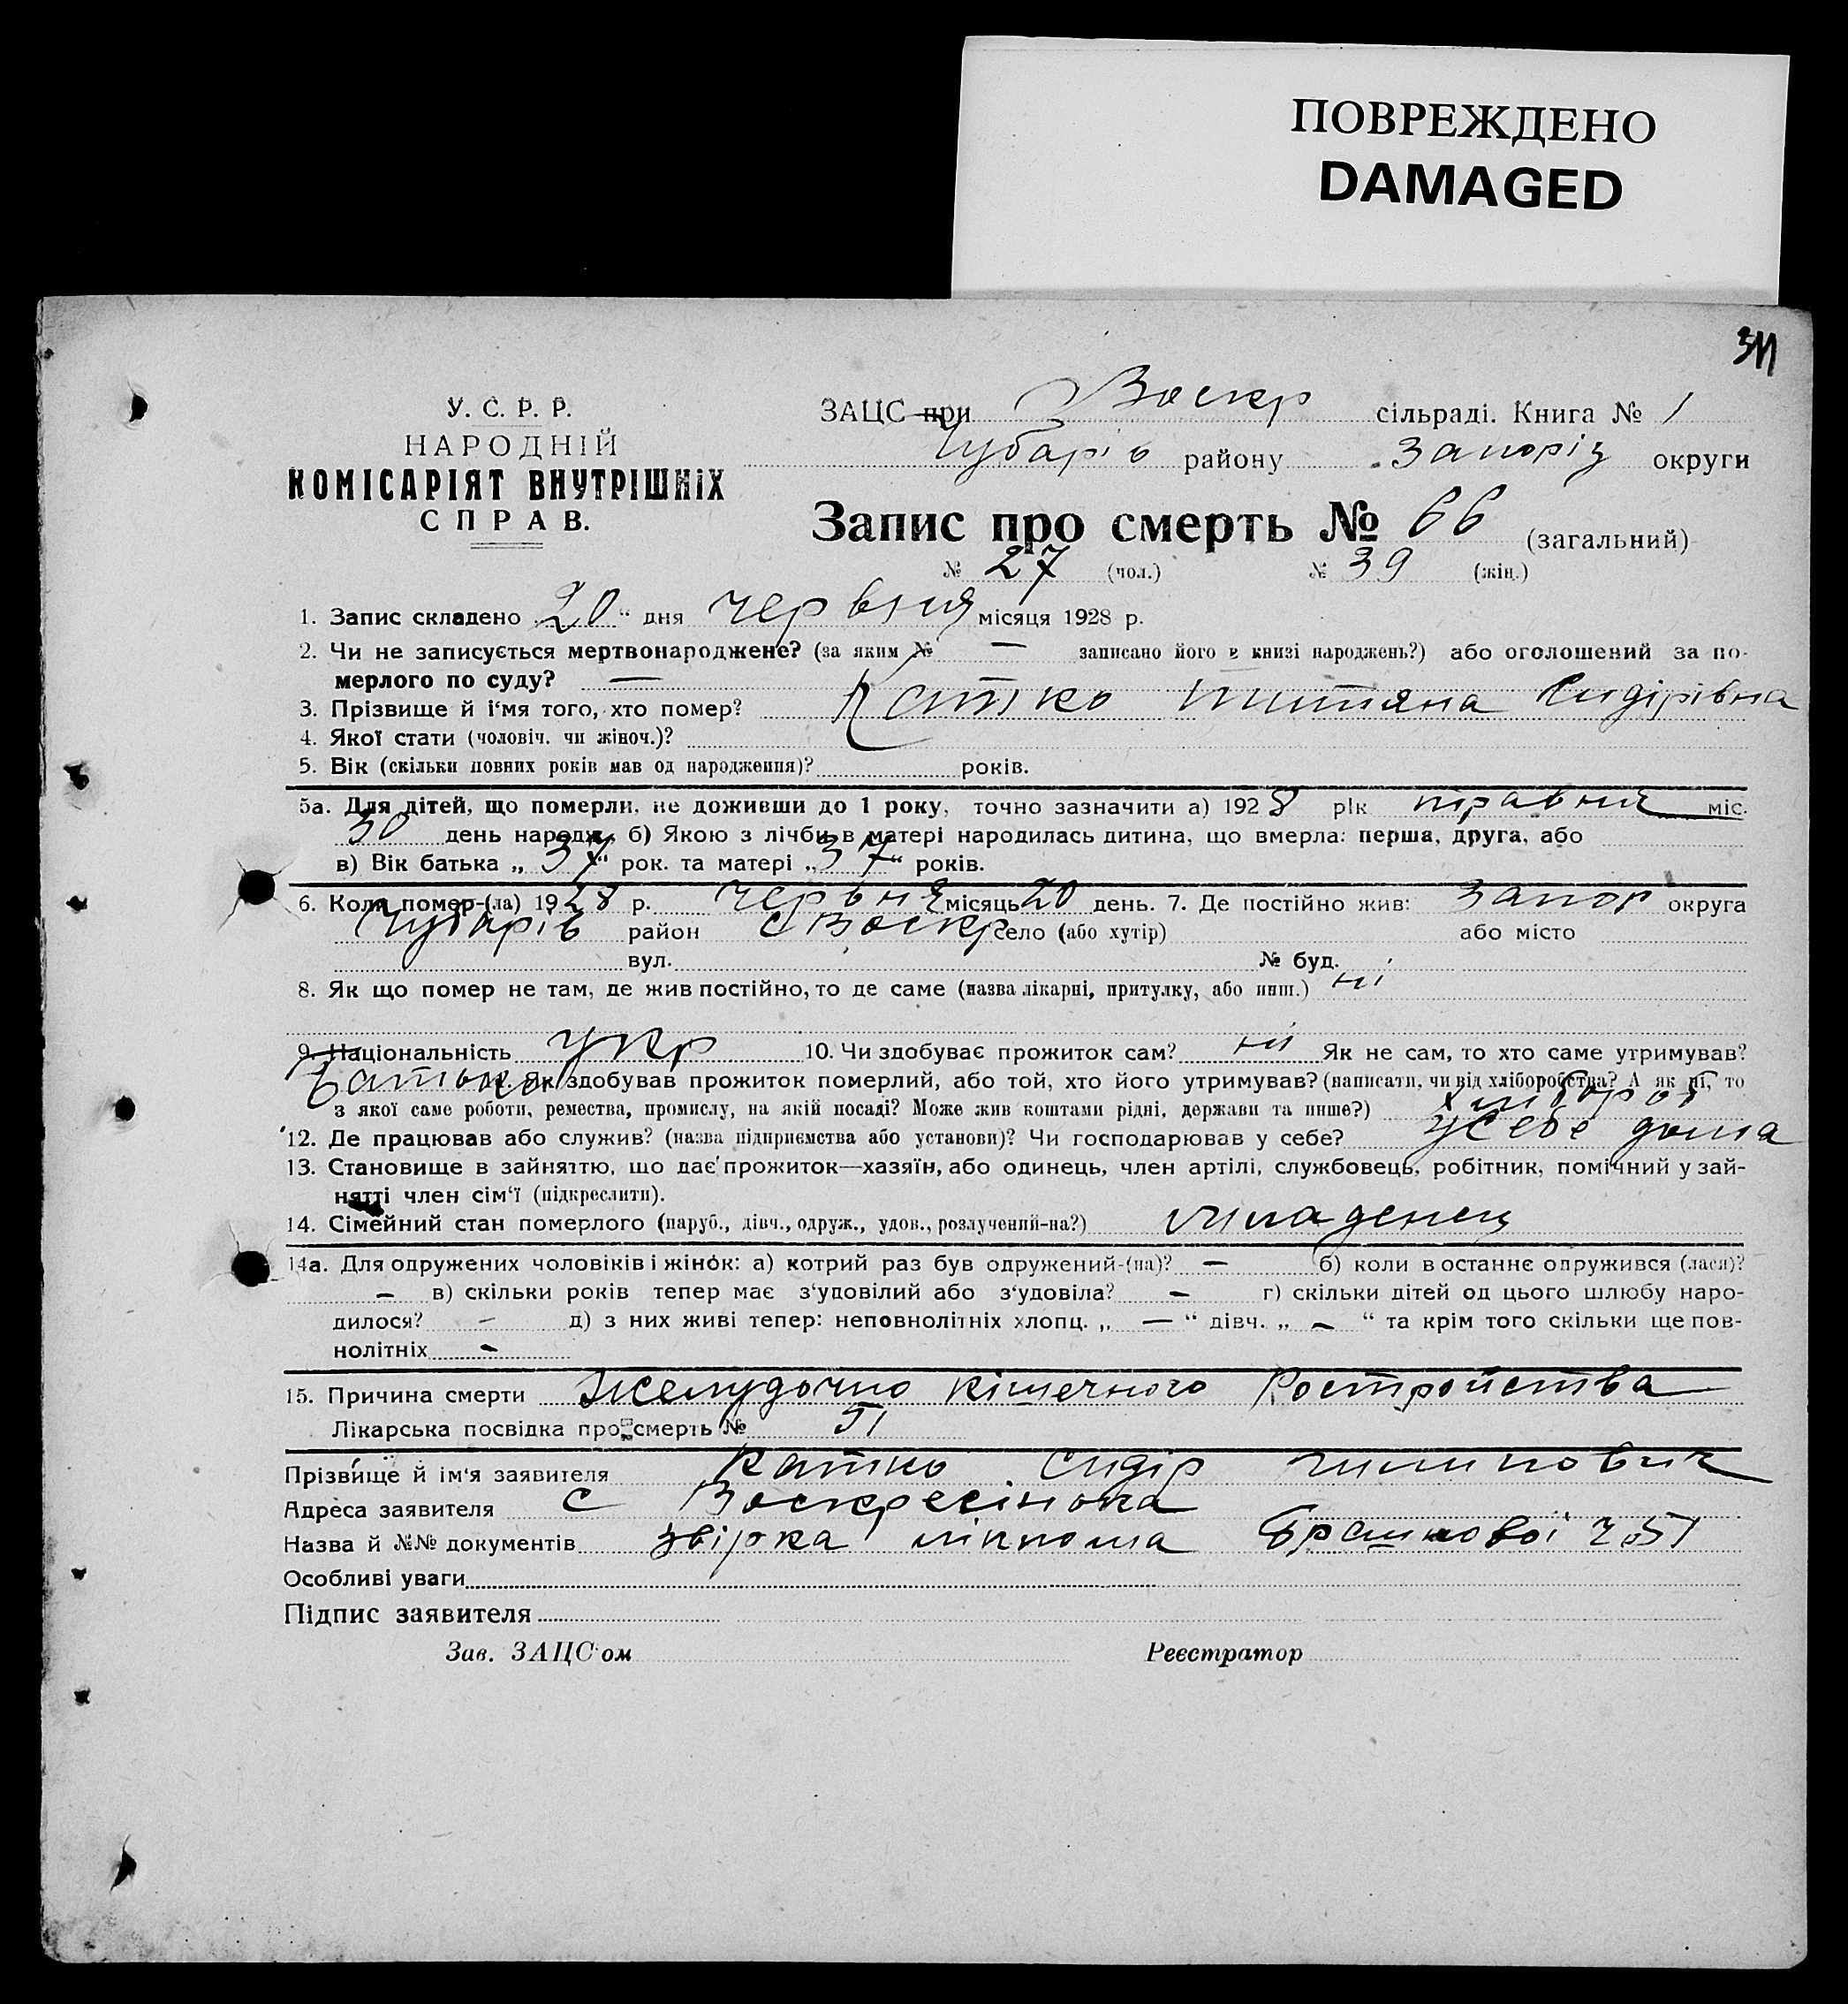 ПОВРЕЖДЕНО
DAMAGED
311
У. С. Р. Р.
НАРОДНІЙ
КОМІСАРІЯТ ВНУТРІШНІХ
СПРАВ.
ЗАЦС при Воскр сільраді. Книга № 1
Чубарів району Запоріз округи
Запис про смерть № 66 (загальний)
№ 27 (чол.) № 39 (жін.)
1. Запис складено 20 “ дня червня місяця 1928 р.
2. Чи не записується мертвонароджене? (за яким № — записано його в книзі народжень?) або оголошений за по-
мерлого по суду? —
3. Прізвище й і‘мя того, хто помер? Катко Титяна Сидірівна
4. Якої стати (чоловіч. чи жіноч.)?
5. Вік (скільки повних років мав од народження)? років.
5а. Для дітей, що померли, не доживши до 1 року, точно зазначити а) 1928 рік травня міс.
30 день народж. б) Якою з лічби в матері народилась дитина, що вмерла: перша, друга, або
в) Вік батька „ 37 “ рок. та матері „ 37 “ років.
6. Коли помер-(ла) 1928 р. червня місяць 20 день. 7. Де постійно жив: Запор округа
Чубарів район с Воскр село (або хутір) або місто
вул. № буд.
8. Як що помер не там, де жив постійно, то де саме (назва лікарні, притулку, або инш.) ні
9. Національність укр 10. Чи здобуває прожиток сам? ні Як не сам, то хто саме утримував?
батько Як здобував прожиток померлий, або той, хто його утримував? (написати, чи від хліборобства? А як ні, то
з якої саме роботи, ремества, промислу, на якій посаді? Може жив коштами рідні, держави та инше?) хлібороб
12. Де працював або служив? (назва підприємства або установи)? Чи господарював у себе? у себе дома
13. Становище в зайняттю, що дає прожиток—хазяїн, або одинець, член артілі, службовець, робітник, помічний у зай-
нятті член сім‘ї (підкреслити).
14. Сімейний стан померлого (паруб., дівч., одруж., удов., розлучений-на?) младенец
14а. Для одружених чоловіків і жінок: а) котрий раз був одружений-(на)? — б) коли в останнє одружився (лася)?
— в) скільки років тепер має з‘удовілий або з‘удовіла? — г) скільки дітей од цього шлюбу наро-
дилося? — д) з них живі тепер: неповнолітніх хлопц. „ — “ дівч. „ — “ та крім того скільки ще пов-
нолітніх —
15. Причина смерти Желудочно кішечного Костройства
Лікарська посвідка про смерть № 51
Прізвище й ім‘я заявителя Катко Сидір
Адреса заявителя с Воскресінька
Назва й №№ документів звірка
Особливі уваги
Підпис заявителя
Зав. ЗАЦС‘ом Реєстратор